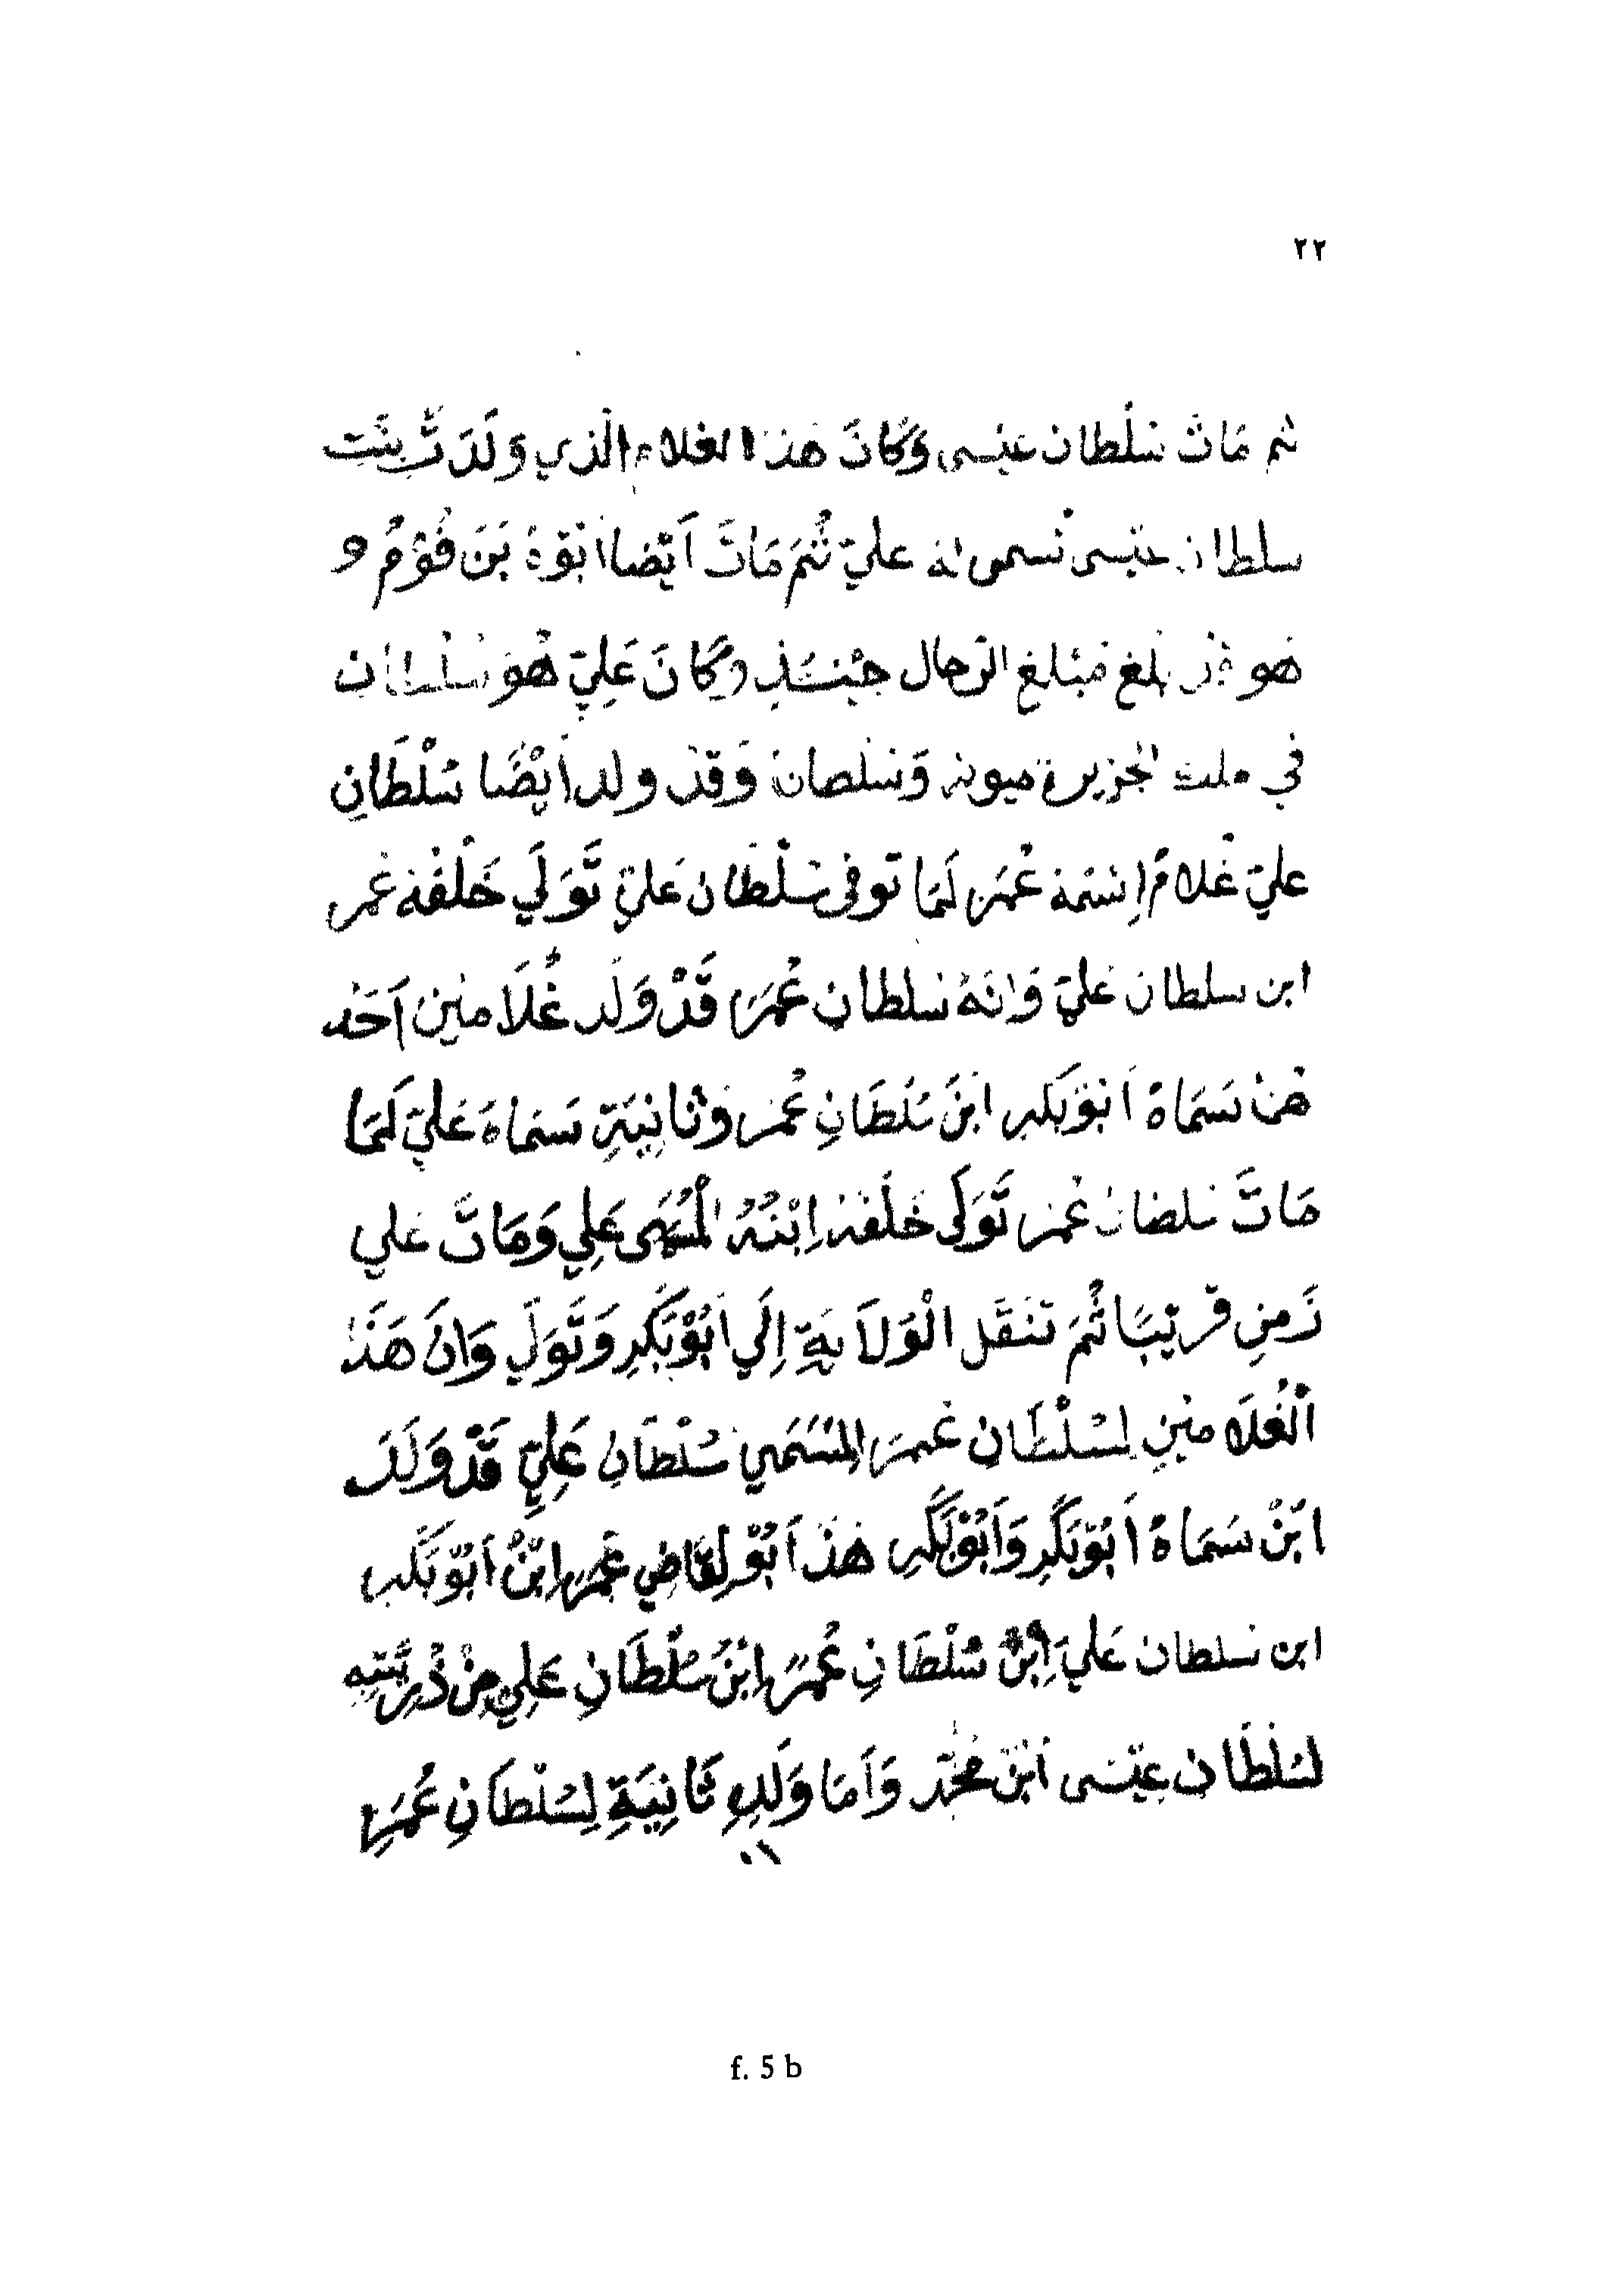 ٢٢
ثم مَاتَ سُلْطان عيسى وَكَانَ هذا الغلام الَّذي وَلَدَتْ بِنْتِ
سلطان عيسى تسمى له عليّ ثُمَّ مَاتَ اَيْضا ابوهُ بَنَ قُوْمُ و
هو قد بلغ مَبْلغ الرّجال حِيْنَئِذِ وكَانَ عَلِيّ هُوَ سُلْطان
في ملك الجزيرة ميوته وَسُلطان وَقَدْ ولد اَيْضًا سُلْطَانِ
عليّ غُلامٌ اِسْمه عُمَر لَمَا توفى سُلْطان عَليّ تَّوَلَي خَلْفَه عُمر
ابن سلطان عَليّ وَانَهُ سلطان عُمَر قَدْ وَلَد غُلَامَيْن اَحَد
هَنْ سَمَاهُ اَبُوْبَكَر ابْنَ سُلْطَانِ عُمَر وثَانِيَةِ سَمَاهُ عَليّ لَمَا
مَاتَ سُلطان عُمَر تَّوَلَى خَلْفَه اِبْنُهُ الْمُسَمَى عَلِي وَمَاتَ عَلي
زَمِنِ قَرِيْبًا ثُمَ تَنَقَل الْوَلاَيَةِ اِلَي اَبُوْبَكَرِ وَتَّوَلَي وَانَ هَذَا
الْغُلَامَيْنِ لِسُلْطَانِ عُمَر المُسَمَي سُلْطَانِ عَلِيّ قَدْ وَلَدَ
ابْنُ سَمَاهُ اَبُوْبَكَرِ وَاَبُوْبَكَرِ هَذَ اَبُوْ لِقَاضِي عُمَر اِبْنُ اَبُوْبَكَر
ابن سلطان عَليّ اِبْنُ سُلْطَانِ عُمَر اِبْنُ سُلْطَانِ عَلِي مِنْ ذُرِيَّتِهِ
لسُلْطَان عِيْسَى ابْنُ مُحَمَّد وَاَمَا وَلَدِ ثَانِيَةِ لِسُلْطَانِ عُمَرِ
f. 5 b